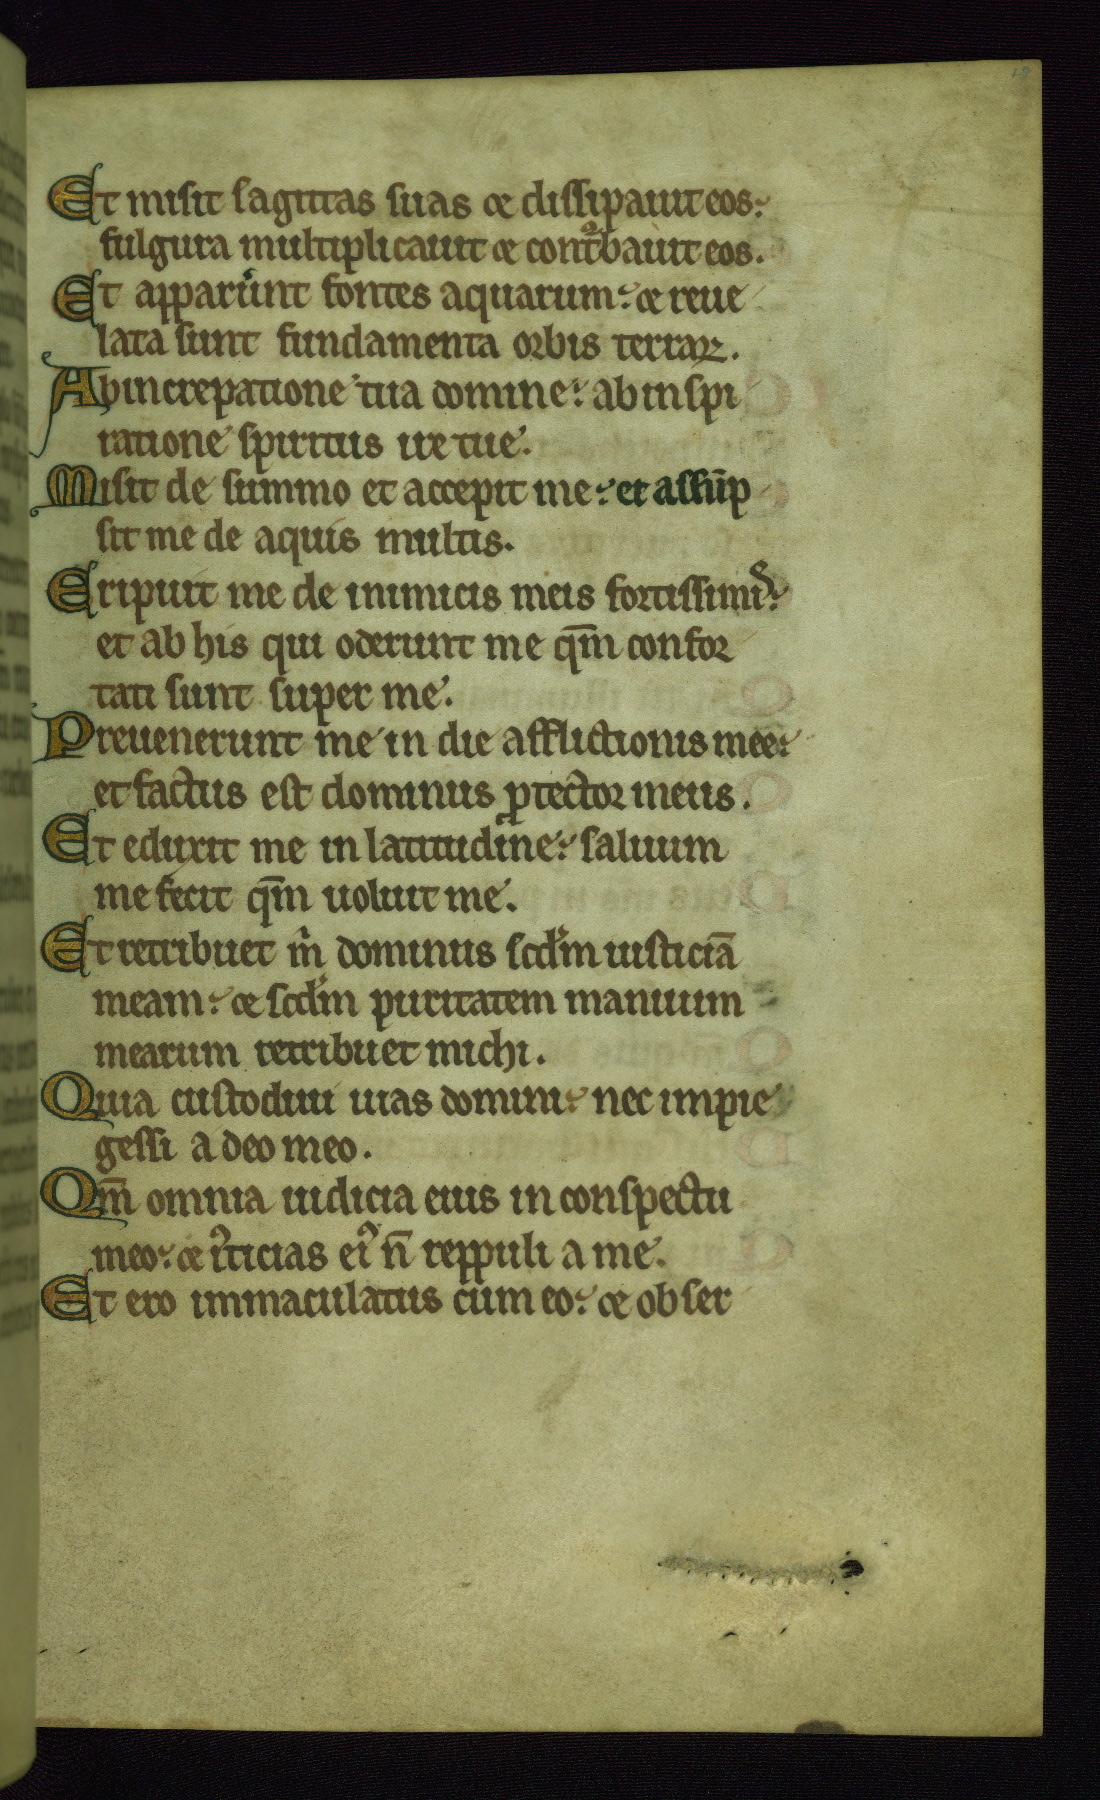 Et misit sagittas suas ⁊ dissipauit eos:
fulgura multiplicauit ⁊ cont᷑bauit eos.
Et apparuͥnt fontes aquarum: ⁊ reue
lata sunt fundamenta orbis terraꝝ.
Ab increpatione tua domine: ab inspi
ratione spiritus ire tue.
Misit de summo et accepit me: et assūp
sit me de aquis multis.
Eripuit me de inimicis meis fortissimis:
et ab his qui oderunt me qm̅ confor
tati sunt super me.
Preuenerunt me in die afflictionis mee:
et factus est dominus ꝓtector meus.
Et eduxit me in latitudine: saluum
me fecit qm̅ uoluit me.
Et retribuet m̅ dominus scd̅m iusticiā
meam: ⁊ scd̅m puritatem manuum
mearum retribuet michi.
Quia custodiui uias domini: nec impie
gessi a deo meo.
Qm̅ omnia iudicia eius in conspectu
meo: ⁊ i᷑ticias eiꝰ n̅ reppuli a me.
Et ero immaculatus cum eo: ⁊ obser